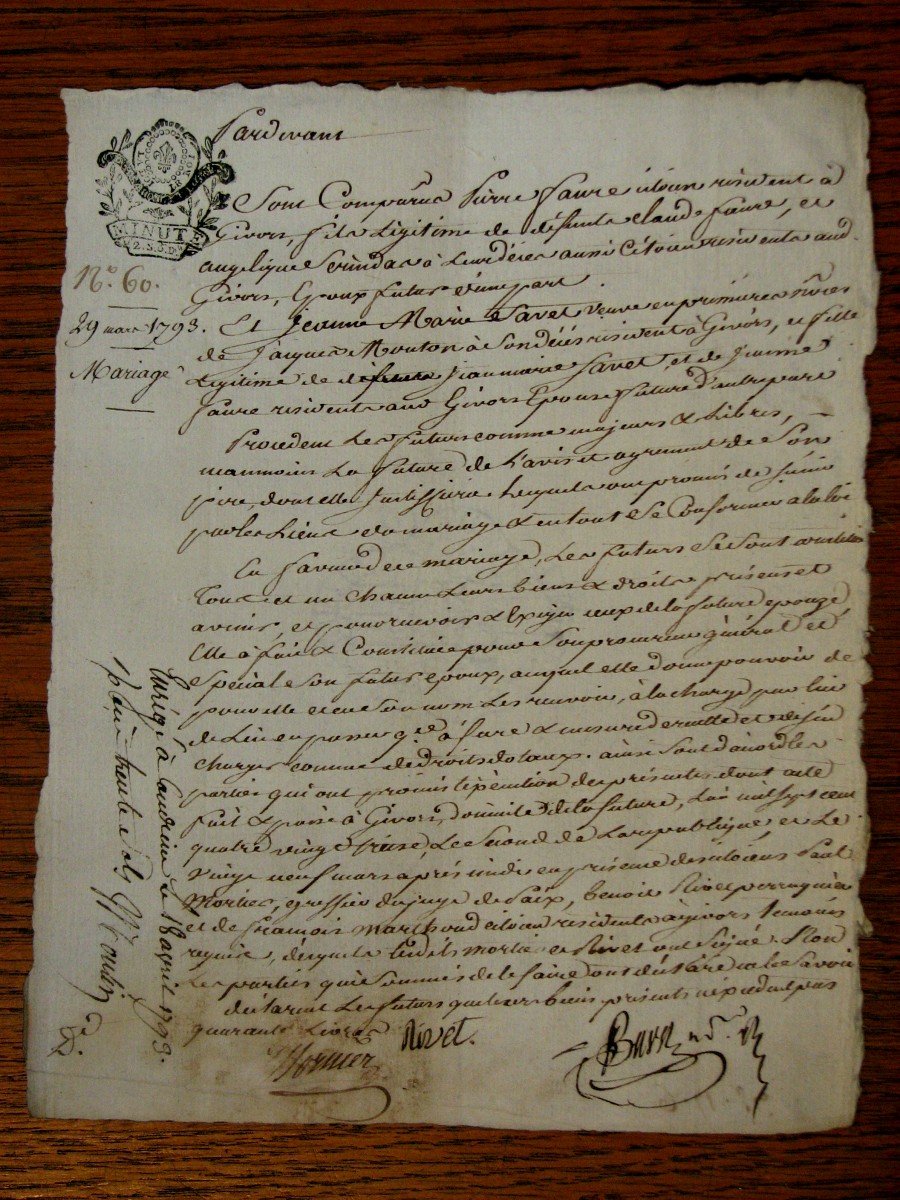 Pardevant
LA LOI
LE ROI
MINUTE
2. S. 6. D.
N.º 60.
29 mars 1793.
Mariage
Sont Comparus Pierre faure citoien résident à
Givors, fils Légitime de défunts claude faure, et
angelique à Leurs décès aussi Citoiens résidents aud
Givors, Epoux futur d'une part
Et Jeanne Marie Savet veuve en premieres nôces
de Jaques Mouton à son décès résident à Givors, et fille
Légitime de Jean marie Savet, et de Jeanne
faure résidents aud Givors Epouse future d'autre part
Procedent Les futurs comme majeurs & Libres,
neanmoins La future de L'avis et agrément de son
pere, dont elle Lesquels ont promis de s'unir
par les Liens du mariage & en tout se Conformer a la loi
En faveur de ce mariage, Les futurs se sont constitués
Tous et un Chacun Leurs biens & droits présens et
avenir, et pour recevoir & Exiger ceux de la future epouze
Elle à fait & Constitué pour son procureur général et
spécial son futur epoux, auquel elle donne pouvoir de
pour elle et en son nom Les recevoir, à la charge par lui
de Lui en passer q.ce à fure & mesure
charges comme de droits dotaux. ainsi sont d'acord les
parties qui ont promis l'exécution des présentes dont acte
fait & passé à Givors, domicile de la future, L'an mil sept cent
quatre vingt treise, Le second de La republique, et Le
vingt neuf mars après midi en présence des citoiens Paul
Mortier, greffier du juge de Paix, benoit Rivet perruquier
et de françois Marthoud citoien résidents à givors temoins
requis, desquels Lesdits mortier et Rivet ont signé. Non
Les parties qui sommés de le faire ont déclaré ne le Savoir
déclarant Les futurs que leurs biens présents n'excedent pas
quarante Livres
Mortier
Rivet.
Enrég. à Condrieu le 18 avril 1793.
Reçu trente sols
D.e